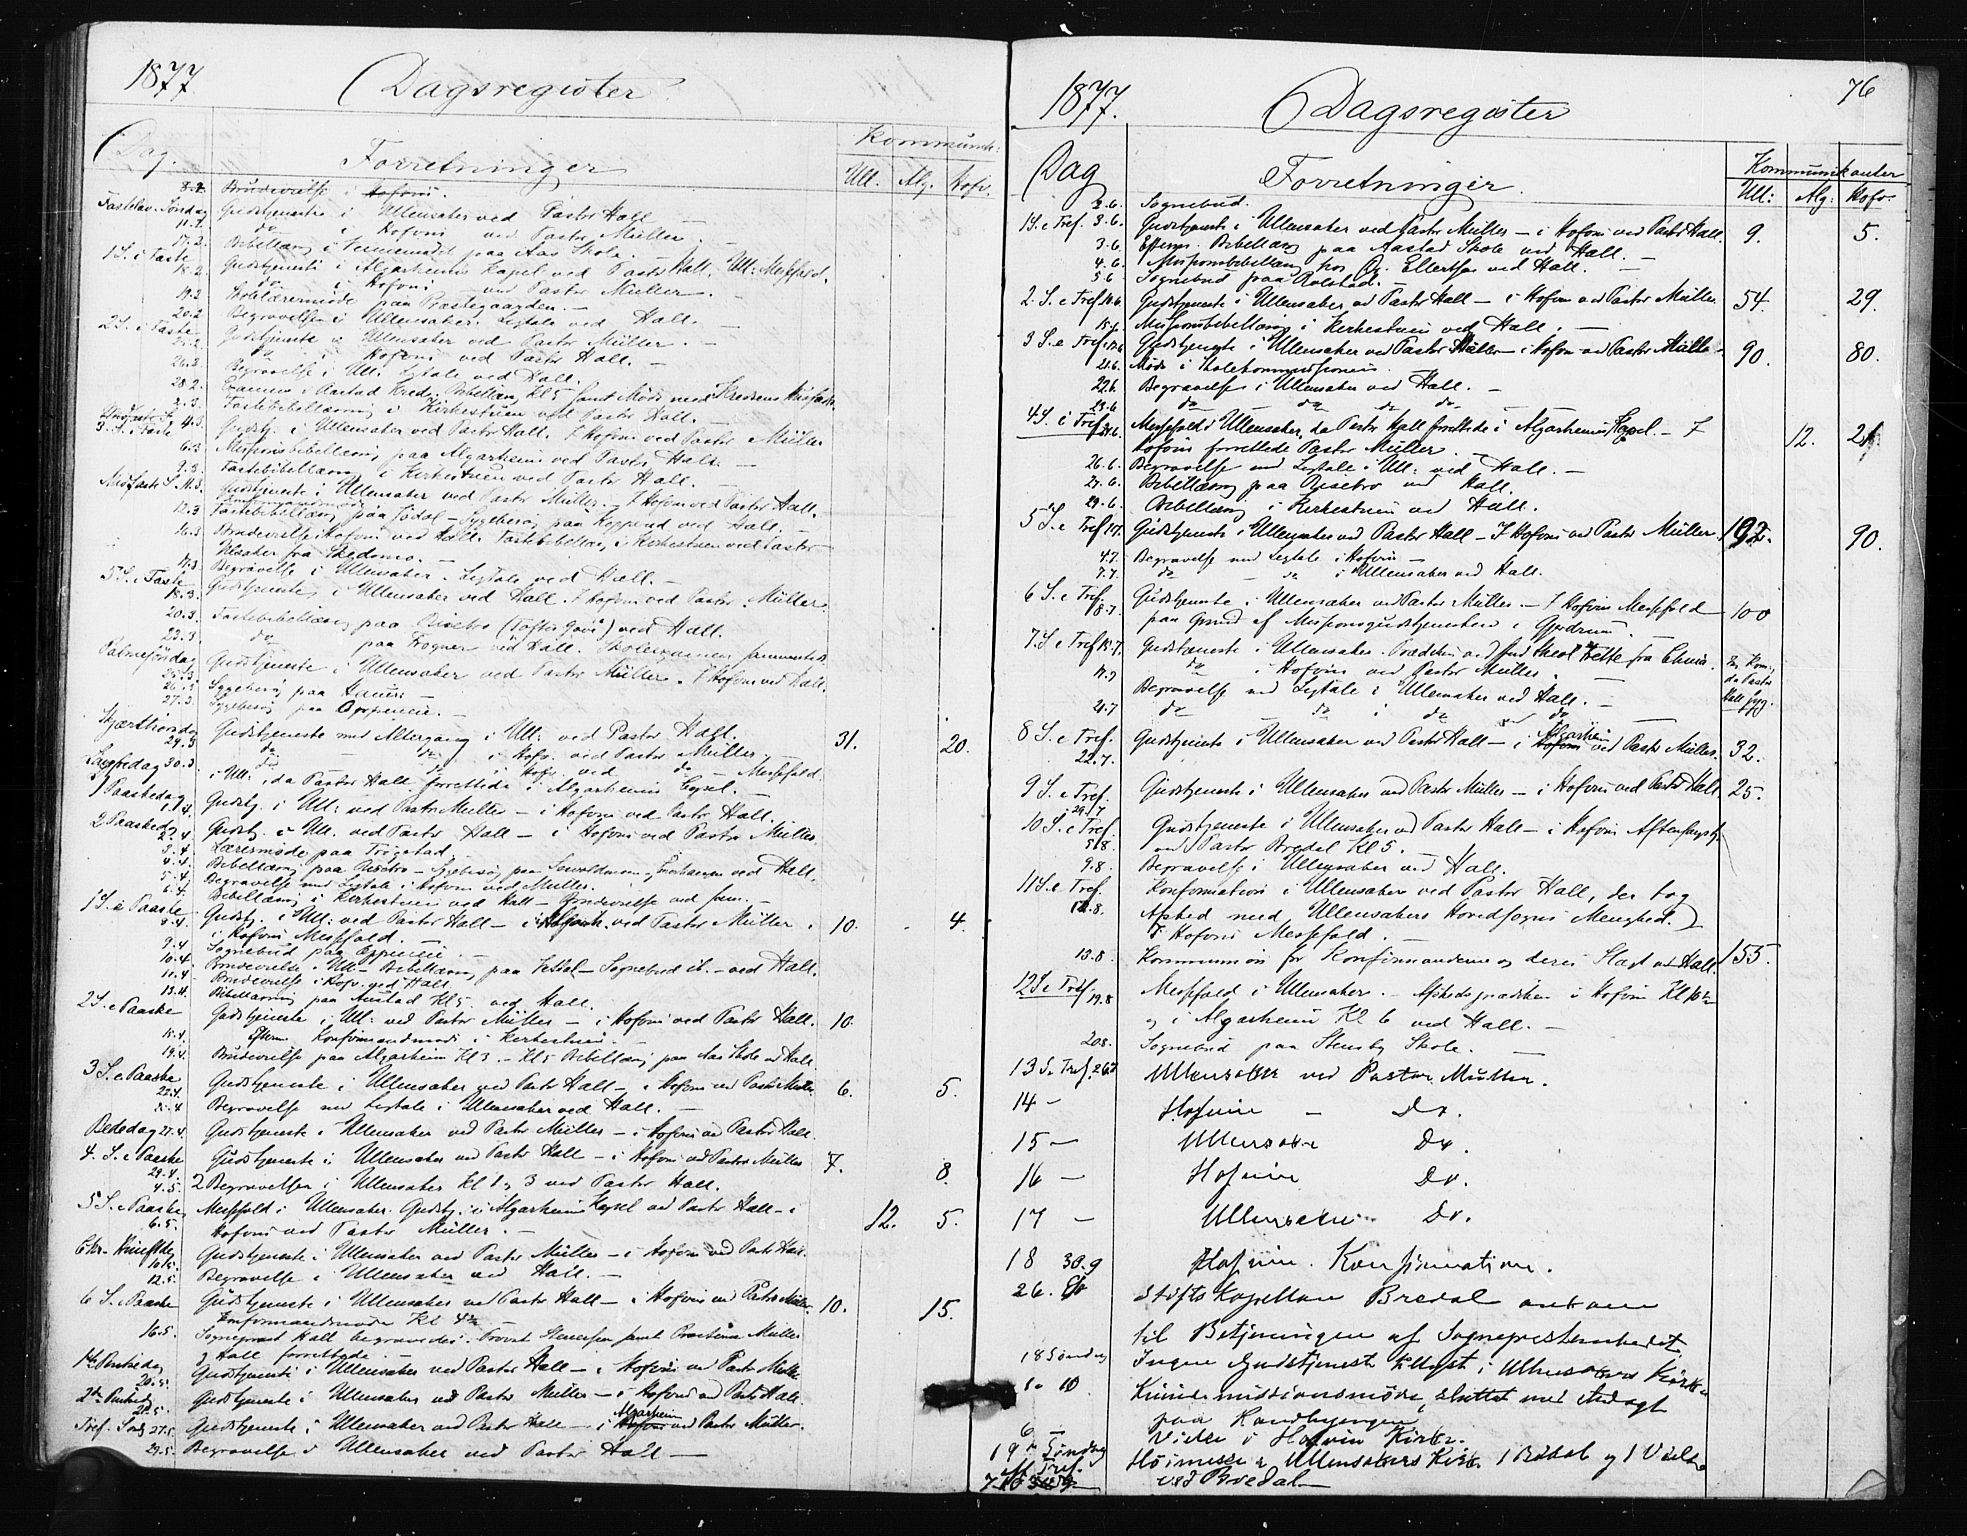 1877 Dagsregister
Dag. Forretninger Kommunik:
Ull. Alg. Hofv.
8.2. Brudevielse i Hofvin.
Fastelav. Søndag 11.2. Gudstjeneste i Ullensaker ved Pastor Hall —
do i Hofvin ved Pastor Müller. —
17.2. Bibellæsng i paa Aas Skole. —
1 S. i Faste 18.2. Gudstjeneste i Algarheims Kapel ved Pastor Hall. Ull: Messefald.
do i Hofvin ved Pastor Müller. —
19.2 Skolelærermøde paa Præstegaarden. —
20.2 Begravelse i Ullensaker. Ligtale ved Hall. —
2 S. i Faste 25.2. Gudstjeneste i Ullensaker ved Pastor Müller. —
do i Hofvin ved Pastor Hall. —
26.2. Begravelse i Ull. Ligtale ved Hall.
28.2. Examen i Aastad Kreds. Bibellæsn. Kl 5 samt Møde med Kredsens
2.3. Fastebibellæsning i Kirkestuen ved Pastor Hall.
3. S. i Faste 4.3. Gudstj. i Ullensaker ved Pastor Hall. I Hofvin ved Pastor Müller
6.3. Missionsbibellæsng paa Algarheim ved Pastor Hall. —
9.3. Fastebibellæsng i Kirkestuen ved Pastor Hall. —
Midfaste S. 11.3. Gudstjeneste i Ullensaker ved Pastor Müller. I Hofvin ved Pastor Hall.
12.3 Fastebibellæsng paa Jødal — Sygebesøg paa ved Hall. —
16.3 Brudevielse i Hofvin ved Hall. Fastebibellæsng i Kirkestuen ved Pastor
Ulsaker fra Skedsmo. —
17.3. Begravelse i Ullensaker. Ligtale ved Hall. —
5 S. i Faste 18.3. Gudstjeneste i Ullensaker ved Hall. I Hofvin ved Pastor Müller.
20.3. Fastebibellæsng paa Risebro ved Hall.
22.3 do paa Frogner ved Hall.
Palmesøndag 25.3. Gudstjeneste i Ullensaker ved Pastor Müller. I Hofvin ved Hall.
26.3 Sygebesøg paa —
27.3. Sygebesøg paa —
Skjærthorsdag 29.3 Gudstjeneste med Altergang i Ull: ved Pastor Hall. 31. 20.
do — do i Hofv. ved Pastor Müller
Langfredag 30.3. do — do i Hofv. ved do — Messefald
i Ull: , da Pastor Hall forrettede i Algarheims Capel. —
1 Paaskedag 1.4. Gudstj. i Ull: ved Pastor Müller — i Hofvin ved Pastor Hall.
2 Paaskedg 2.4. Gudstj. i Ull. ved Pastor Hall — i Hofvin ved Pastor Müller
3.4. Lærermøde paa Trøgstad.
4.4. Bibellæsng paa Risebro — Sygebesøg paa ved Hall.
5.4. Begravelse med Ligtale i Hofvin ved Müller.
6.4. Bibellæsng i Kirkestuen ved Hall —
1 S. e Paaske 8.4. Gudstj. i Ull: ved Pastor Hall — i Algarh. ved Pastor Müller. 10. 4.
i Hofvin Messefald. —
9.4. Sognebud paa —
10.4. Brudevielse i Ull — Bibellæsng paa Jødal — Sognebud ib. — ved Hall.
11.4. Brudevielse i Hofv. ved Hall
13.4. Bibellæsning paa Aastad Kl 5. ved Hall.
2 S. e Paaske 15.4. Gudstjeneste i Ull: ved Pastor Müller — i Hofvin ved Pastor Hall. 10.
Efterm. Konfirmandmøde i Kirkestuen. —
19.4. Brudevielse paa Algarheim Kl 3. — Kl 5 Bibellæsng paa Aas Skole ved Hall
3 S. e Paaske 22.4. Gudstjeneste i Ullensaker ved Pastor Hall — i Hofvin ved Pastor Müller. 6. 5.
25.4 Begravelse med Ligtale i Ullensaker ved Hall. —
Bededag 27.4. Gudstjeneste i Ullensaker ved Pastor Müller — i Hofvin ved Pastor Hall.
4. S. e Paaske 29.4. Gudstjeneste i Ullensaker ved Pastor Hall — i Hofvin ved Pastor Müller 7. 8.
4.5. 2 Begravelser i Ullensaker Kl 1 og 3 ved Pastor Hall.
5 S. e Paaske 6.5. Messefald i Ullensaker. Gudstj. i Algarheims Kapel ved Pastor Hall — i 12. 5.
Hofvin ved Pastor Müller. —
Chr. Himfltdg 10.5. Gudstjeneste i Ullensaker ved Pastor Müller — i Hofvin ved Pastor Hall.
12.5. Begravelse i Ullensaker ved Hall. —
6 S. e Paaske Gudstjeneste i Ullensaker ved Pastor Hall — i Hofvin ved Pastor Müller. 10. 15.
Konfirmandmøde Kl 4½
16.5. Sognepræst Hall begravedes. Provst samt Præsterne Müller
og Hall forrettede. —
1ste Pintsedag 20.5. Gudstjeneste i Ullensaker ved Pastor Hall — i Hofvin ved Pastor Müller
2de Pintsedg 21.5. Gudstjeneste i Ullensaker ved Pastor Müller — i Hofvin ved Pastor Hall.
Tref. Sødg 27.5. Gudstjeneste i Ullensaker ved Pastor Hall — i Hofvin Algarheim ved Pastor Müller.
29.5. Begravelse i Ullensaker ved Pastor Hall —
76
1877. Dagsregister
Dag Forretninger. Kommunikanter
Ull: Alg: Hofv.
2.6. Sognebud.
1 S. e Tref. 3.6. Gudstjeneste i Ullensaker ved Pastor Müller — i Hofvin ved Pastor Hall. 9. 5.
3.6. Efterm. Bibellæsng paa Aastad Skole ved Hall. —
4.6. Missionsbibellæsng hos Ellertsen ved Hall. —
5.6 Sognebud paa Rolstad. —
2. S. e Tref 10.6 Gudstjeneste i Ullensaker ved Pastor Hall — i Hofvin ved Pastor Müller. 54. 29.
Missionsbibellæsng i Kirkestuen ved Hall. —
3 S. e Tref. 17.6 Gudstjeneste i Ullensaker ved Pastor Hall — i Hofvin ved Pastor Müller 90. 80.
21.6. Møde i Skolekommissionen.
22.6. Begravelse i Ullensaker ved Hall. —
23.6 do — do do do —
4 S. e Tref 24.6. Messefald i Ullensaker, da Pastor Hall forrettede i Algarheims Kapel. — I 12. 21.
Hofvin forrettede Pastor Müller. —
26.6. Begravelse med Ligtale i Ull: ved Hall. —
27.6. Bibellæsng paa Risebro ved Hall.
29.6. Bibellæsng i Kirkestuen ved Hall.
5 S. e Tref 1.7. Gudstjeneste i Ullensaker ved Pastor Hall — I Hofvin ved Pastor Müller. 192. 90.
4.7. Begravelse med Ligtale i Hofvin —
7.7. do — do i Ullensaker ved Hall.
6 S. e Tref. 8.7. Gudstjeneste i Ullensaker ved Pastor Müller. — I Hofvin Messefald 100
paa Grund af Missionsgudstjenesten i Gjerdrum. —
7. S. e Tref 15.7. Gudstjeneste i Ullensaker. Prædiken ved Tette fra China.
do i Hofvin ved Pastor Müller.
17.7 Begravelse med Ligtale i Ullensaker ved Hall. —
21.7 do do i do ved do
8 S. e Tref. 22.7. Gudstjeneste i Ullensaker ved Pastor Hall — i Hofvin Algarheim ved Pastor Müller. 32.
9 S. e Tref. 29.7 Gudstjeneste i Ullensaker ved Pastor Müller — i Hofvin ved Pastor Hall. 25.
10 S. e Tref. 5.8. Gudstjeneste i Ullensaker ved Pastor Hall — i Hofvin Aftensangstj.
ved Pastor Bredal Kl 5.
9.8. Begravelse i Ullensaker ved Hall.
11 S. e Tref. 12.8. Konfirmation i Ullensaker ved Pastor Hall, der tog
Afsked med Ullensakers Hovedsogns Menighed.
I Hofvin Messefald. —
13.8 Kommunion for Konfirmanderne og deres Slægt ved Hall. 155.
12 S. e Tref. 19.8 Messefald i Ullensaker. — Afskedsprædiken i Hofvin Kl 10½
og i Algarheim Kl 6 ved Hall. —
20.8. Sognebud paa Stensby Skole. —
13 S. e Tref. 26.8 Ullensaker ved Pastor Müller.
14 — Hofvin — Do.
15 — Ullensaker Do.
16 — Hofvin Do.
17 — Ullensaker Do.
18 30.9 Hofvin. Konfirmation.
26. Stiftskapellan Bredal ankom
til Betjeningen af Sognepræstembedet
18 Søndag Ingen Gudstjeneste tillyst i Ullensakers Kirke
10 Kvindemissionsmøde, sluttet med Andagt
paa
6 — Vielse i Hofvin Kirke.
19 Søndag Høimesse i Ullensakers Kirke. 1 Barbd. og 1 Vielse
Tref. 7.10 ved Bredal.